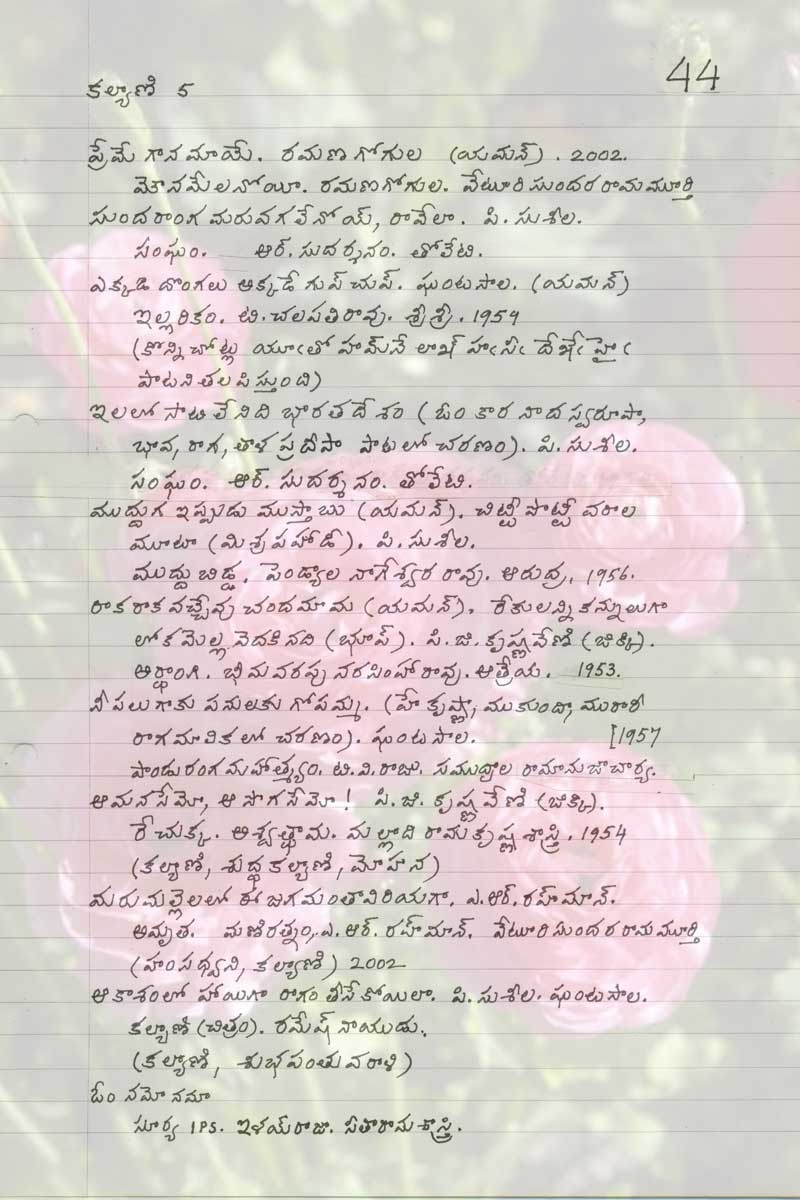 కల్యాణి 5
44
ప్రేమే గానమాయే. రమణ గోగుల (యమన్). 2002.
మౌనమేలనోయీ. రమణగోగుల. వేటూరి సుందర రామమూర్తి
సుందరాంగ మరువగలేనోయ్, రావేలా. పి. సుశీల.
సంఘం. ఆర్. సుదర్శనం. తోలేటి.
ఎక్కడి దొంగలు అక్కడే గుప్ చుప్. ఘంటసాల. (యమన్)
ఇల్లరికం. టి. చలపతిరావు. శ్రీశ్రీ. 1959
(కొన్ని చోట్ల యూఁతో హమ్‌నే లాఖ్ హఁసీఁ దేఖేఁ హైఁ
పాటని తలపిస్తుంది)
ఇలలో సాటి లేనిది భారతదేశం (ఓం కార నాద స్వరూపా,
భావ, రాగ, తాళ ప్రదీపా పాటలో చరణం). పి. సుశీల.
సంఘం. ఆర్. సుదర్శనం. తోలేటి.
ముద్దుగ ఇప్పుడు ముస్తాబు (యమన్). చిట్టీ పొట్టీ వరాల
మూటా (మిశ్రపహాడీ). పి. సుశీల.
ముద్దు బిడ్డ. పెండ్యాల నాగేశ్వర రావు. ఆరుద్ర. 1956.
రాక రాక వచ్చేవు చందమామ (యమన్). రేకులన్ని కన్నులుగా
లోకమెల్ల వెదకినది (భూప్). పి. జి. కృష్ణవేణి (జిక్కి).
అర్ధాంగి. భీమవరపు నరసింహారావు. ఆత్రేయ. 1953.
నీ పలుగాకు పనులకు గోపమ్మ. (హే కృష్ణా, ముకుందా, మురారీ
రాగమాలికలో చరణం). ఘంటసాల. [1957
పాండురంగ మహాత్మ్యం. టి. వి. రాజు. సముద్రాల రామానుజాచార్య.
ఆ మనసేమో, ఆ సొగసేమో! పి. జి. కృష్ణవేణి (జిక్కి).
రేచుక్క. అశ్వత్థామ. మల్లాది రామకృష్ణ శాస్త్రి. 1954
(కల్యాణి, శుద్ధ కల్యాణి, మోహన)
మరుమల్లెలలో ఈ జగమంతా విరియగా. ఎ. ఆర్. రహ్‌మాన్.
అమృత. మణిరత్నం, ఎ. ఆర్. రహ్‌మాన్. వేటూరి సుందర రామమూర్తి
(హంసధ్వని, కల్యాణి) 2002
ఆకాశంలో హాయిగా రాగం తీసే కోయిలా. పి. సుశీల. ఘంటసాల.
కల్యాణి (చిత్రం). రమేష్ నాయుడు.
(కల్యాణి, శుభపంతువరాళి)
ఓం నమో నమా
సూర్య IPS. ఇళయ్‌రాజా. సీతారామశాస్త్రి.